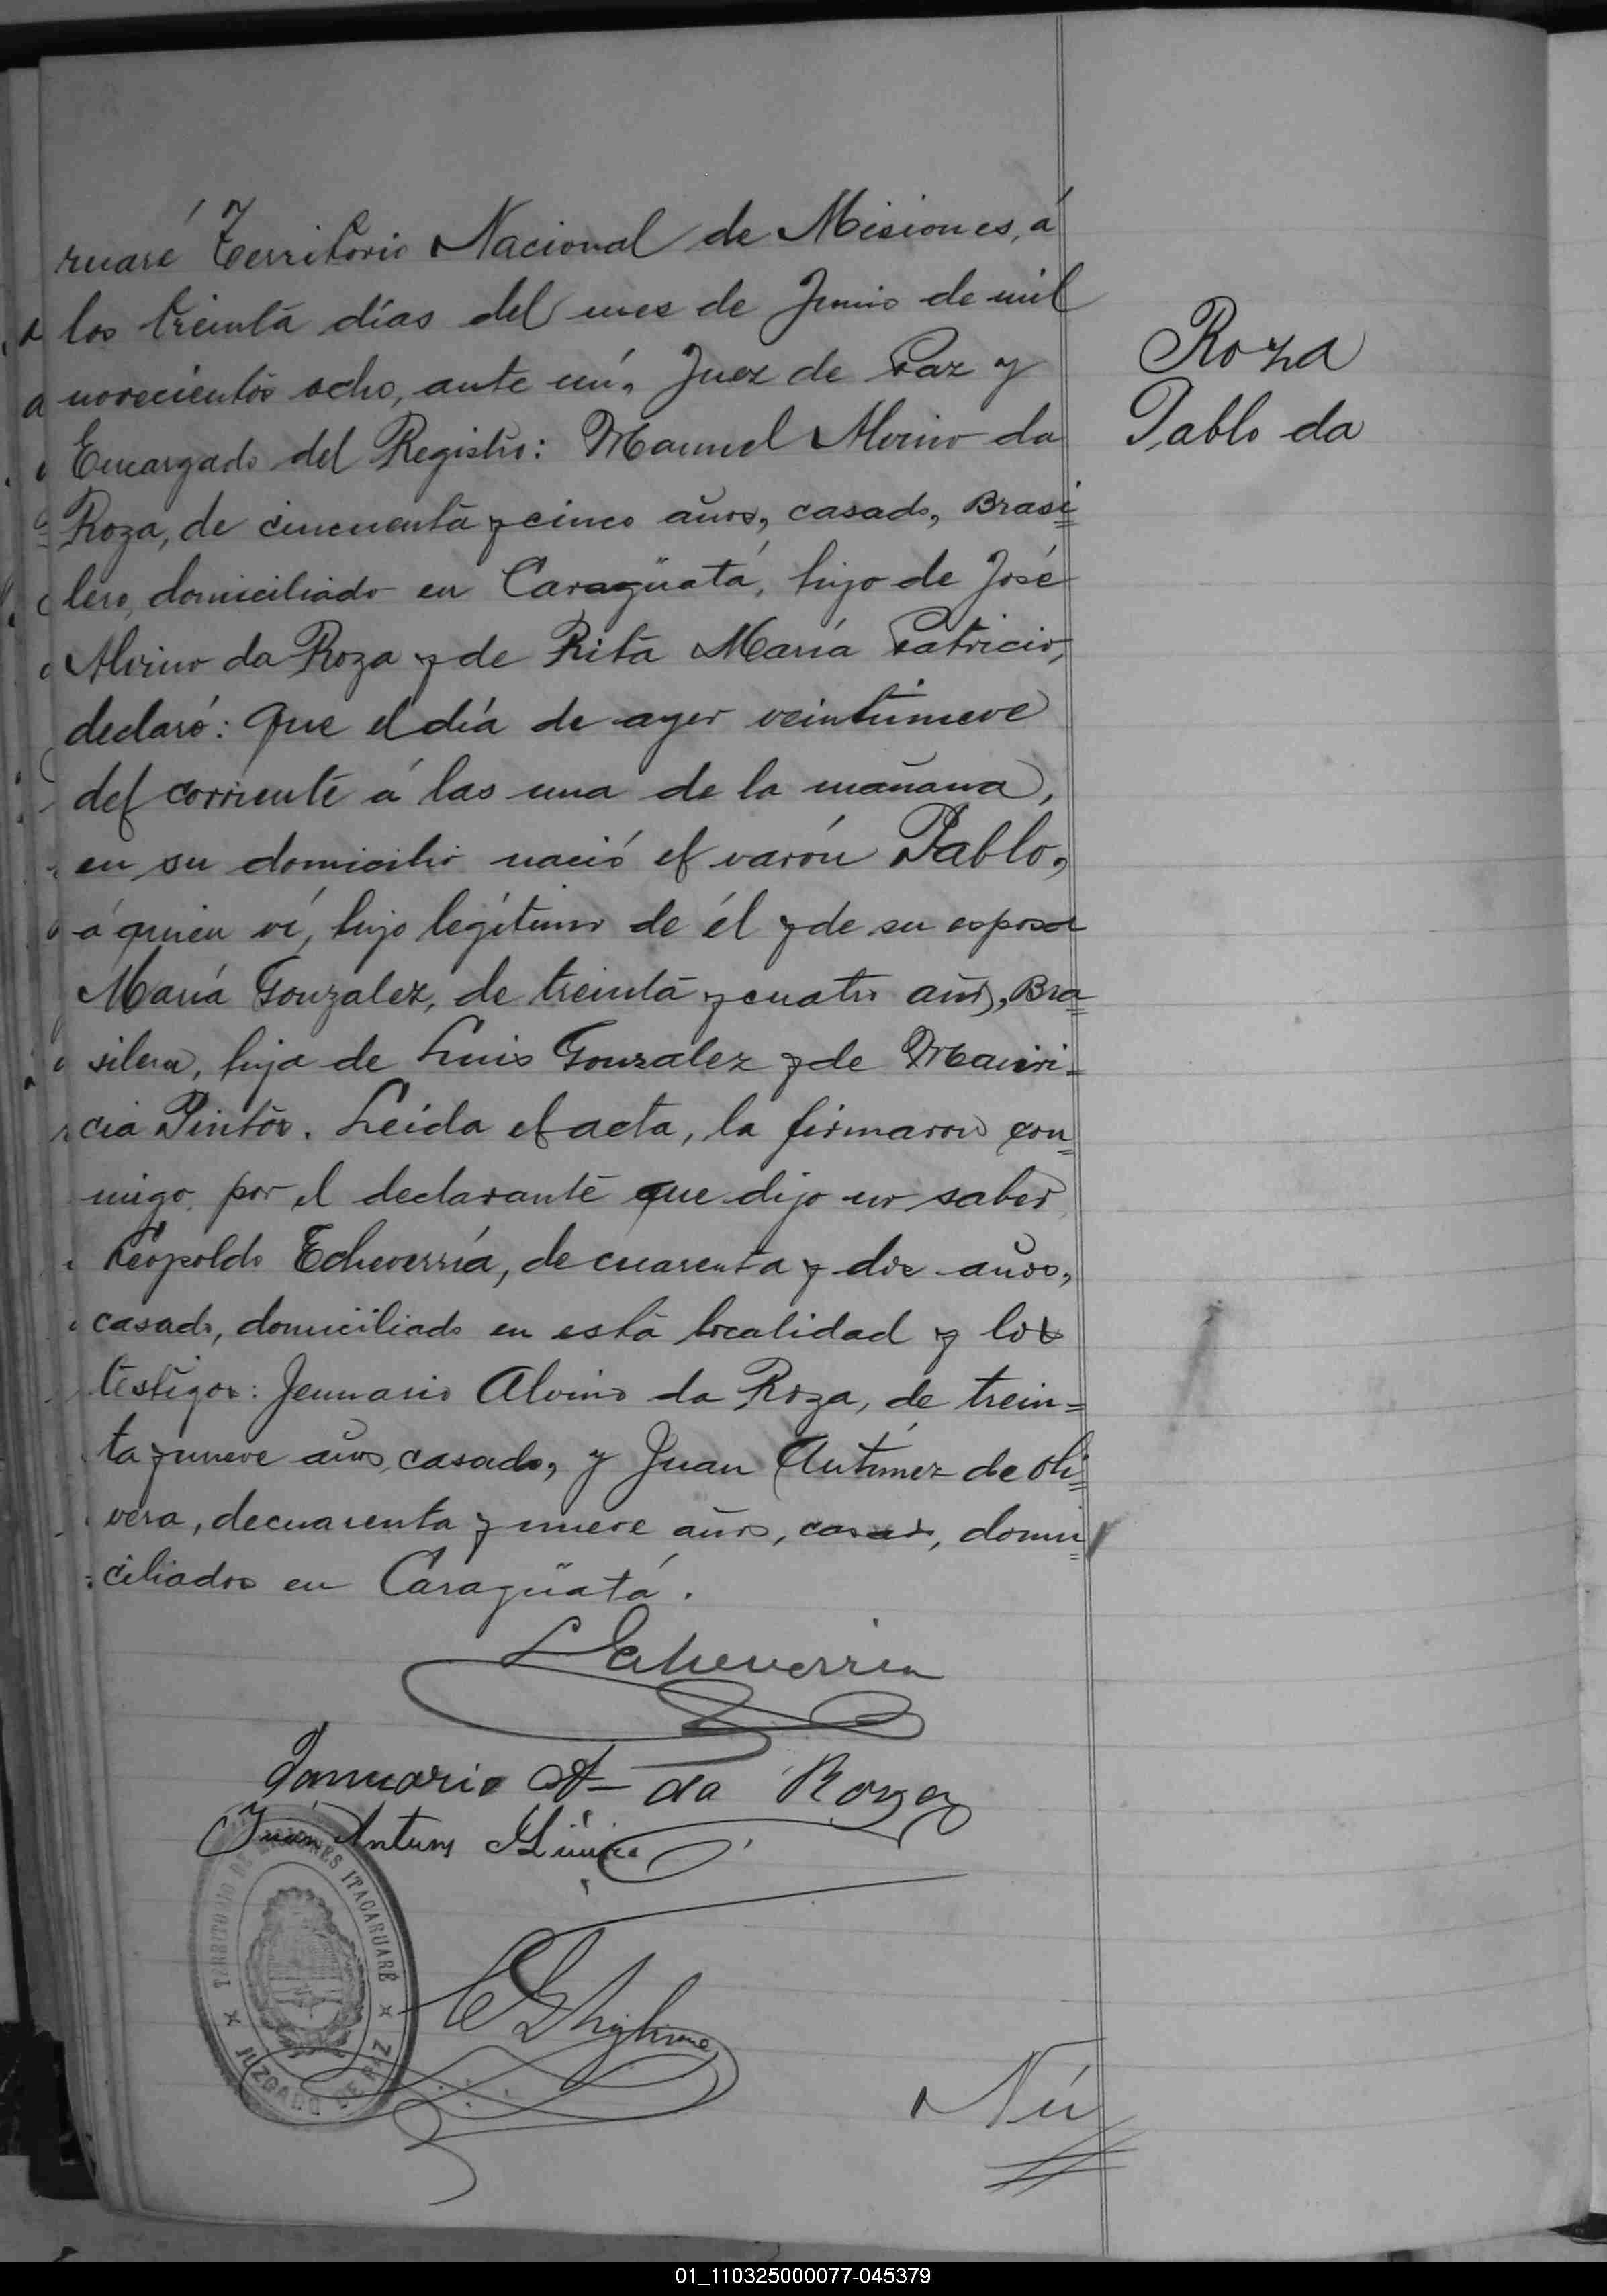 ruaré Territorio Nacional de Misiones, á
los treinta días del mes de Junio de mil
novecientos ocho, ante mí, Juez de Paz y
Encargado del Registro: Manuel Alvino da
Roza, de cincuenta y cinco años, casado, Brasi=
lero, domiciliado en Caragüatá, hijo de José
Alvino da Roza y de Rita María Patricio,
declaró: Que el día de ayer veintinueve
del corriente á las una de la mañana,
en su domicilio nació el varón Pablo,
á quien ví, hijo legítimo de él y de su esposa
María Gonzalez, de treinta y cuatro años, Bra=
silera, hija de Luis Gonzalez y de Mauri=
cia Pintos. Leída el acta, la firmaron con=
migo por el declarante que dijo no saber
Leopoldo Echeverría, de cuarenta y dos años,
casado, domiciliado en esta localidad y los
testigos: Jenuario Alvino da Roza, de trein=
ta y nueve años, casado, y Juan Antunez de Oli=
vera, de cuarenta y nueve años, casado, domi=
ciliados en Caragüatá.
Roza
Pablo da
L Echeverria
Januario A= da Roza
Juan Antuns
TERRITORIO DE MISIONES ITACARUARÉ
JUZGADO DE PAZ
Nú
01_110325000077-045379